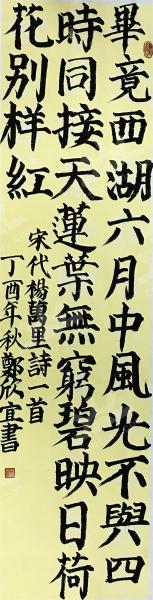 畢竟西湖六月中風光不與四
時同接天蓮葉無窮碧映日荷
花别样紅
宋代楊萬里詩一首
丁酉年秋鄭欣宜書